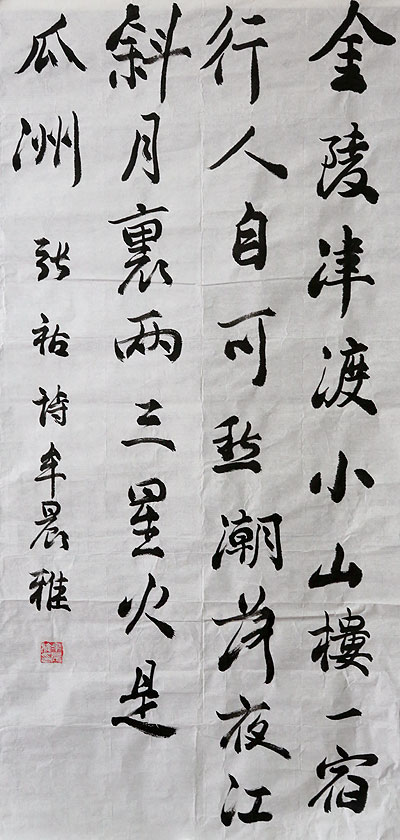 金陵津渡小山樓一宿
行人自可愁潮落夜江
斜月裏兩三星火是
瓜洲
張祜詩牟晨雅